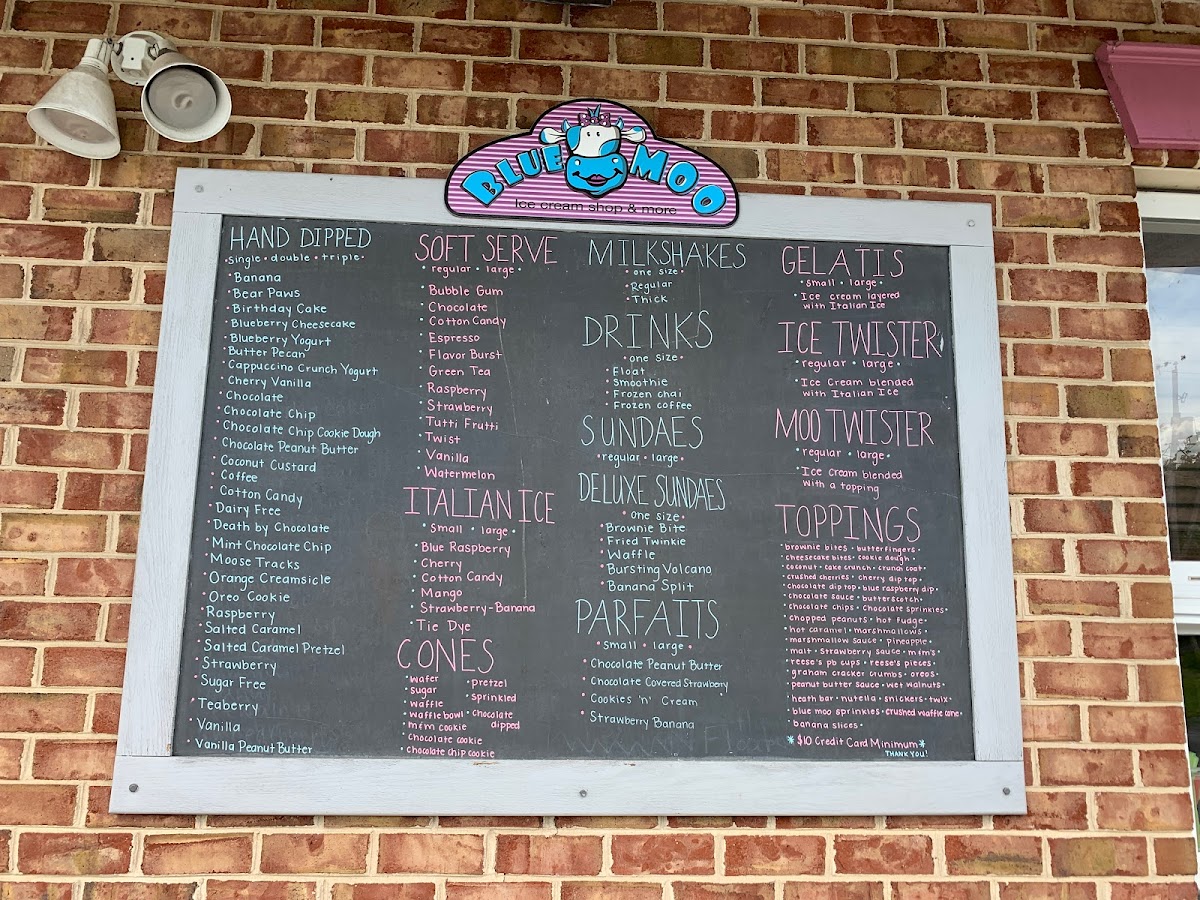 BLUE MOO
Ice cream shop & more
HAND DIPPED
• single • double • triple •
• Banana
• Bear Paws
• Birthday Cake
• Blueberry Cheesecake
• Blueberry Yogurt
• Butter Pecan
• Cappuccino Crunch Yogurt
• Cherry Vanilla
• Chocolate
• Chocolate Chip
• Chocolate Chip Cookie Dough
• Chocolate Peanut Butter
• Coconut Custard
• Coffee
• Cotton Candy
• Dairy Free
• Death by Chocolate
• Mint Chocolate Chip
• Moose Tracks
• Orange Creamsicle
• Oreo Cookie
• Raspberry
• Salted Caramel
• Salted Caramel Pretzel
• Strawberry
• Sugar Free
• Teaberry
• Vanilla
• Vanilla Peanut Butter
SOFT SERVE
• regular • large •
• Bubble Gum
• Chocolate
• Cotton Candy
• Espresso
• Flavor Burst
• Green Tea
• Raspberry
• Strawberry
• Tutti Frutti
• Twist
• Vanilla
• Watermelon
ITALIAN ICE
• Small • large •
• Blue Raspberry
• Cherry
• Cotton Candy
• Mango
• Strawberry-Banana
• Tie Dye
CONES
• wafer
• sugar
• waffle
• waffle bowl
• m&m cookie
• chocolate cookie
• chocolate chip cookie
• pretzel
• sprinkled
• chocolate
dipped
MILKSHAKES
• one size •
• Regular
• Thick
DRINKS
• one size •
• Float
• Smoothie
• Frozen chai
• Frozen coffee
SUNDAES
• regular • large •
DELUXE SUNDAES
• one size •
• Brownie Bite
• Fried Twinkie
• Waffle
• Bursting Volcano
• Banana Split
PARFAITS
• small • large •
• Chocolate Peanut Butter
• Chocolate Covered Strawberry
• Cookies 'n' Cream
• Strawberry Banana
GELATIS
• small • large •
• Ice cream layered
with Italian Ice
ICE TWISTER
• regular • large •
• Ice Cream blended
with Italian Ice
MOO TWISTER
• regular • large •
• Ice Cream blended
with a topping
TOPPINGS
• brownie bites • butterfingers •
• cheesecake bites • cookie dough •
• coconut • cake crunch • crunch coat •
• crushed cherries • cherry dip top •
• chocolate dip top • blue raspberry dip •
• chocolate sauce • butterscotch •
• chocolate chips • chocolate sprinkles •
• chopped peanuts • hot fudge •
• hot caramel • marshmallows •
• marshmallow sauce • pineapple •
• malt • strawberry sauce • m&m's •
• reese's pb cups • reese's pieces •
• graham cracker crumbs • oreos •
• peanut butter sauce • wet walnuts •
• heath bar • nutella • snickers • twix •
• blue moo sprinkles • crushed waffle cone •
• banana slices •
* $10 Credit Card Minimum *
THANK YOU!